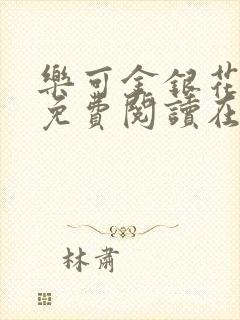 樂可金銀花
免費閱讀在
林肅